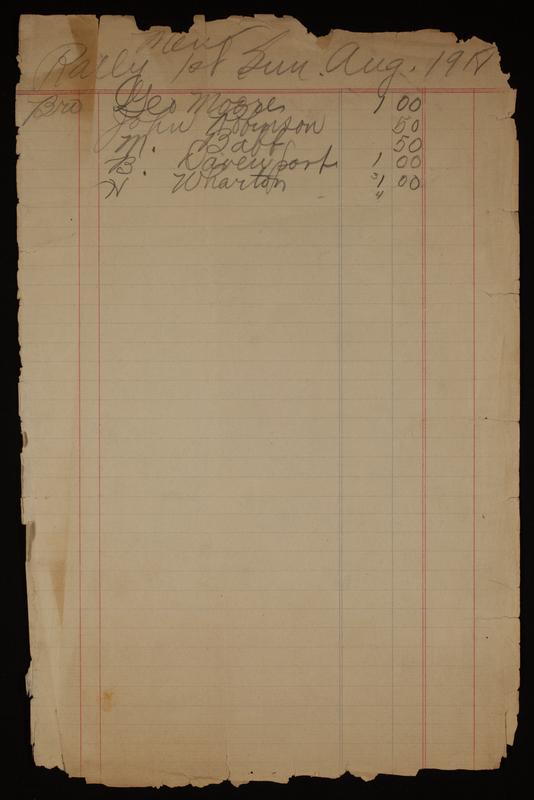 Men
Rally 1st Sun. Aug. 19
Bro Geo Moore 1 00
John Robinson 50
M. Babb 50
B. Davenport 1 00
W Wharton 1 00